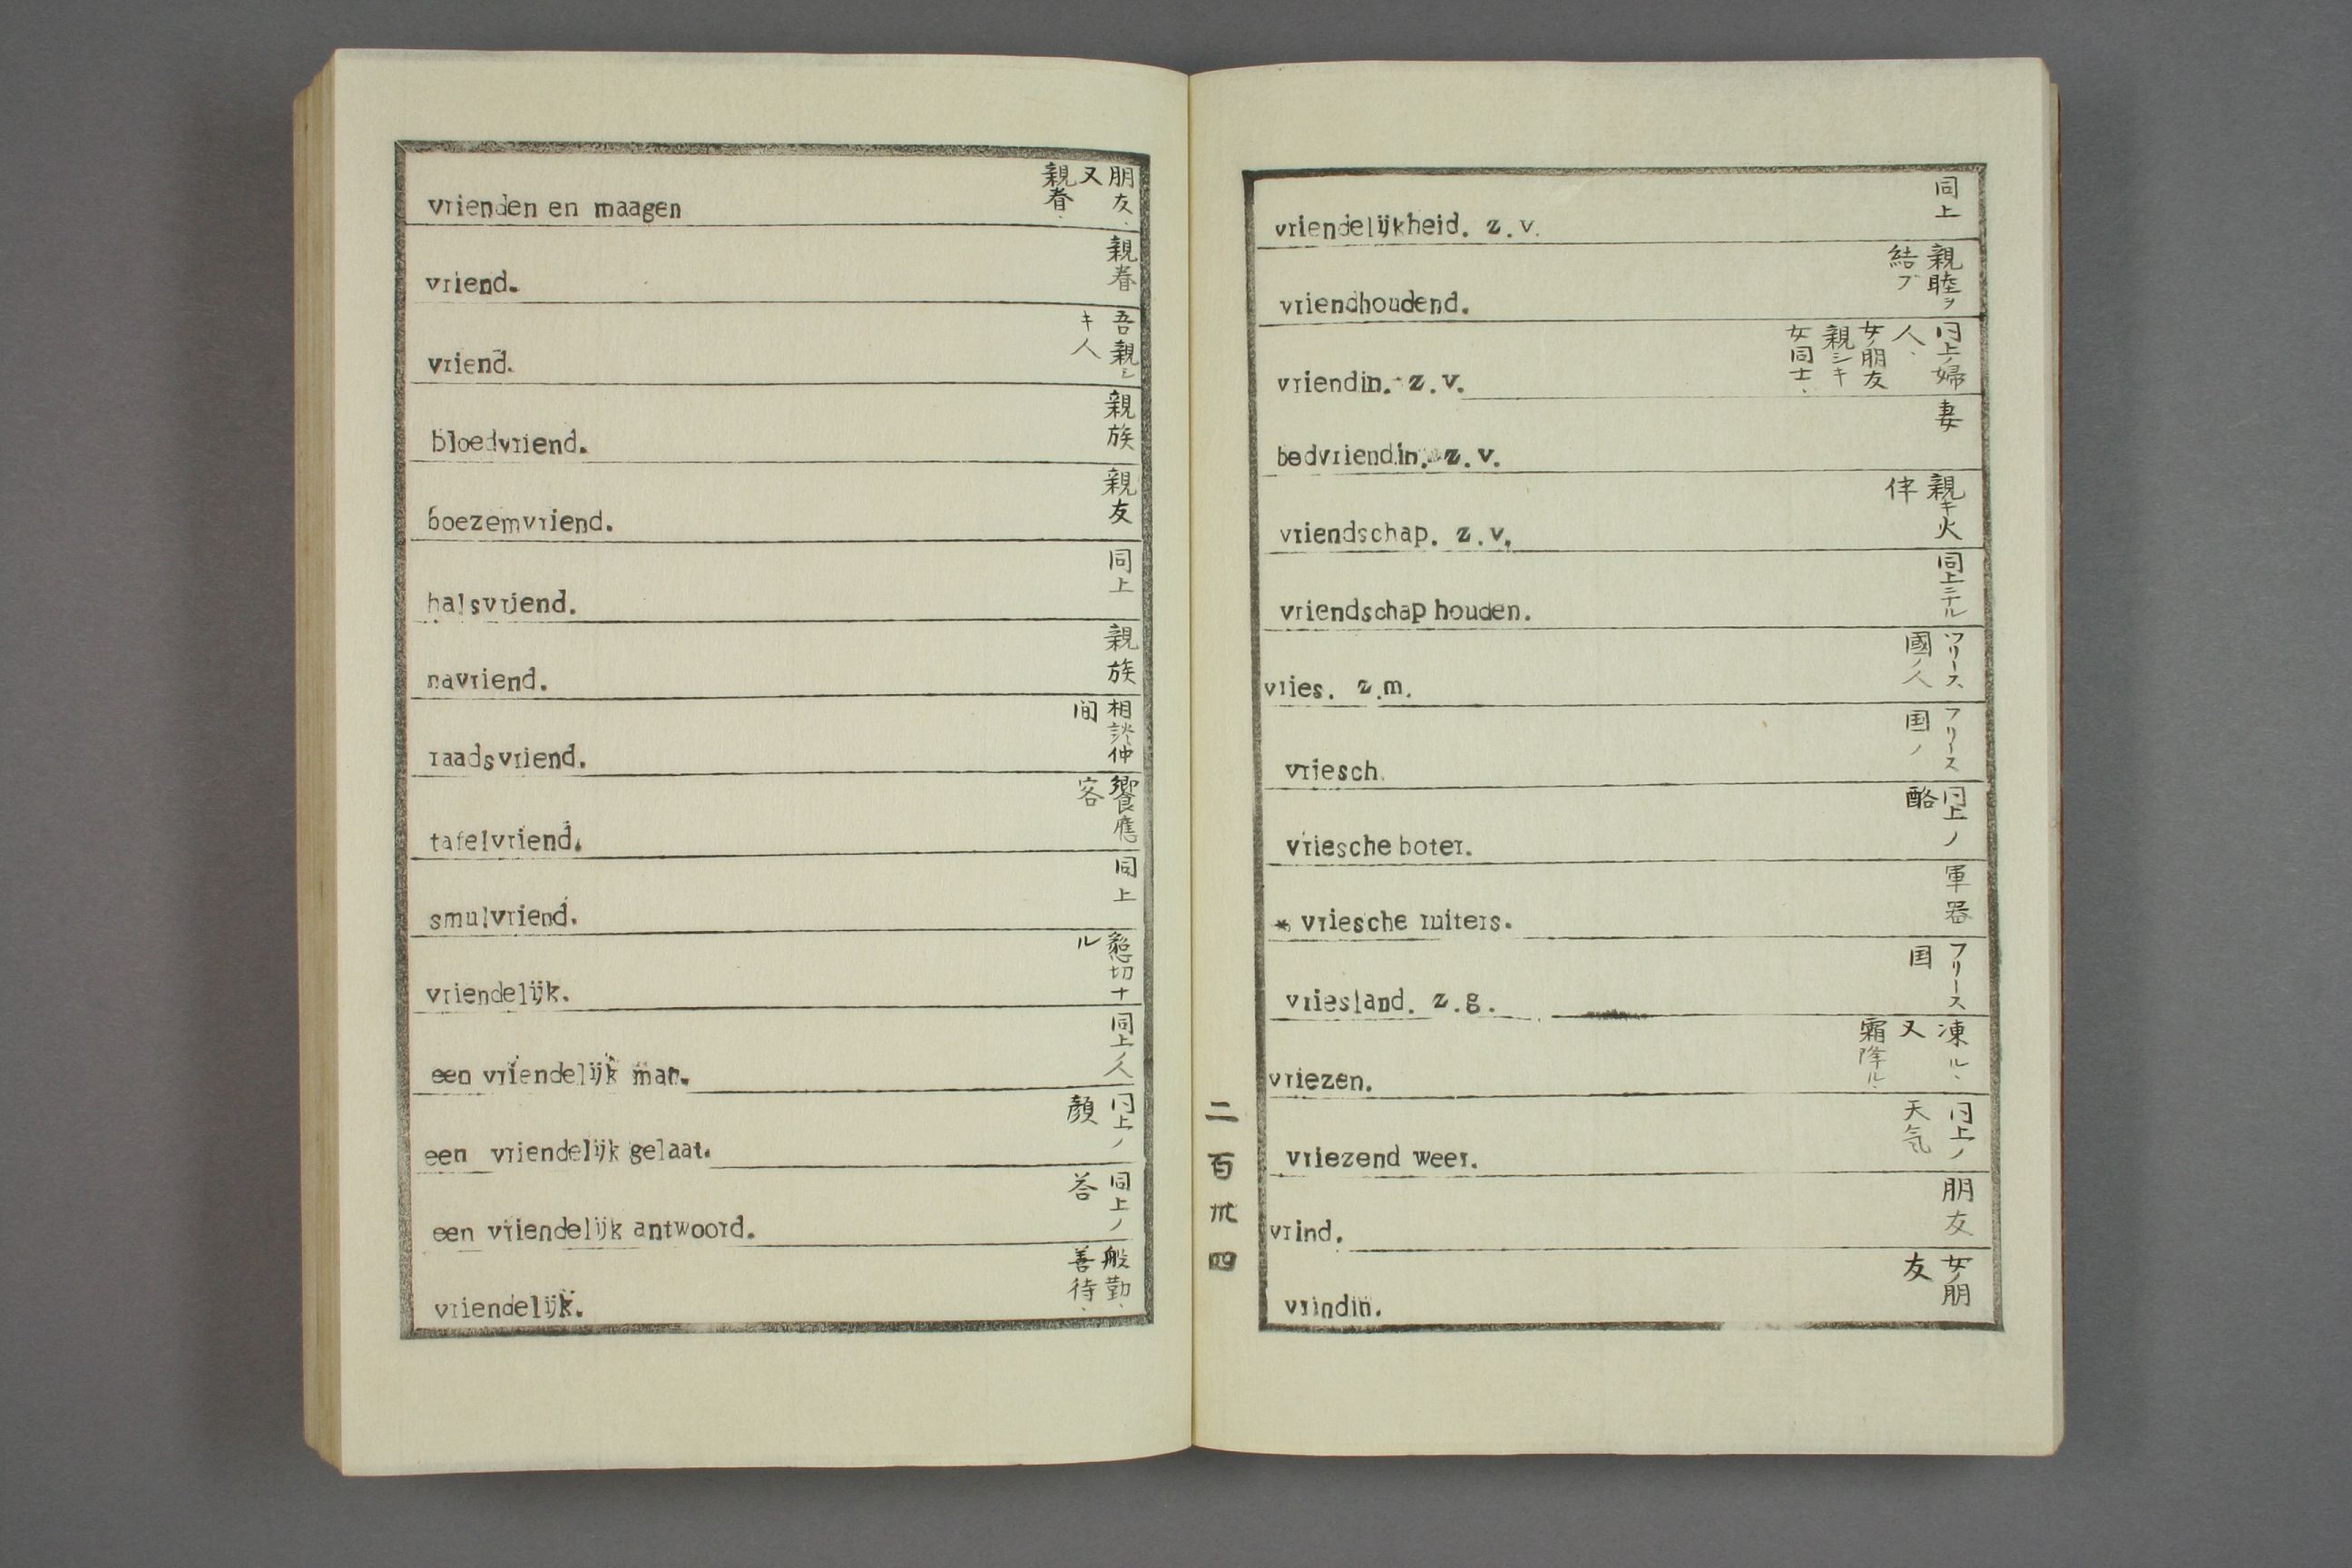 vrienden en maagen
朋友、
又
親眷、
vriend.
親眷
vriend.
吾親シ
キ人
bloedvriend.
親族
boezemvriend.
親友
halsvriend.
同上
navriend.
親族
raadsvriend.
相談仲
间
tafelvriend.
饗應
客
smulvriend.
同上
vriendelijk.
懇切ナ
ル
een vriendelijk man.
同上ノ人
een vriendelijk gelaat.
同上ノ
顔
een vriendelijk antwoord.
同上ノ
荅
vriendelijk.
般勤、
善待、
vriendelijkheid. z.v.
同上
vriendhoudend.
親睦ヲ
結ブ
vriendin. z.v.
同上ノ婦
人、
女ノ朋友
親シキ
女同士、
bedvriendin. z.v.
妻
vriendschap. z.v.
親キ火
伴
vriendschap houden.
同上ニナル
vries. z.m.
フリース
國ノ人
vriesch.
フリース
国ノ
vriesche boter.
同上ノ
酪
* vriesche ruiters.
軍器
vriesland. z.g.
フリース
国
vriezen.
凍ル、
又
霜降ル、
vriezend weer.
同上ノ
天気
vrind.
朋友
vrindin.
女ノ朋
友
二百卅四